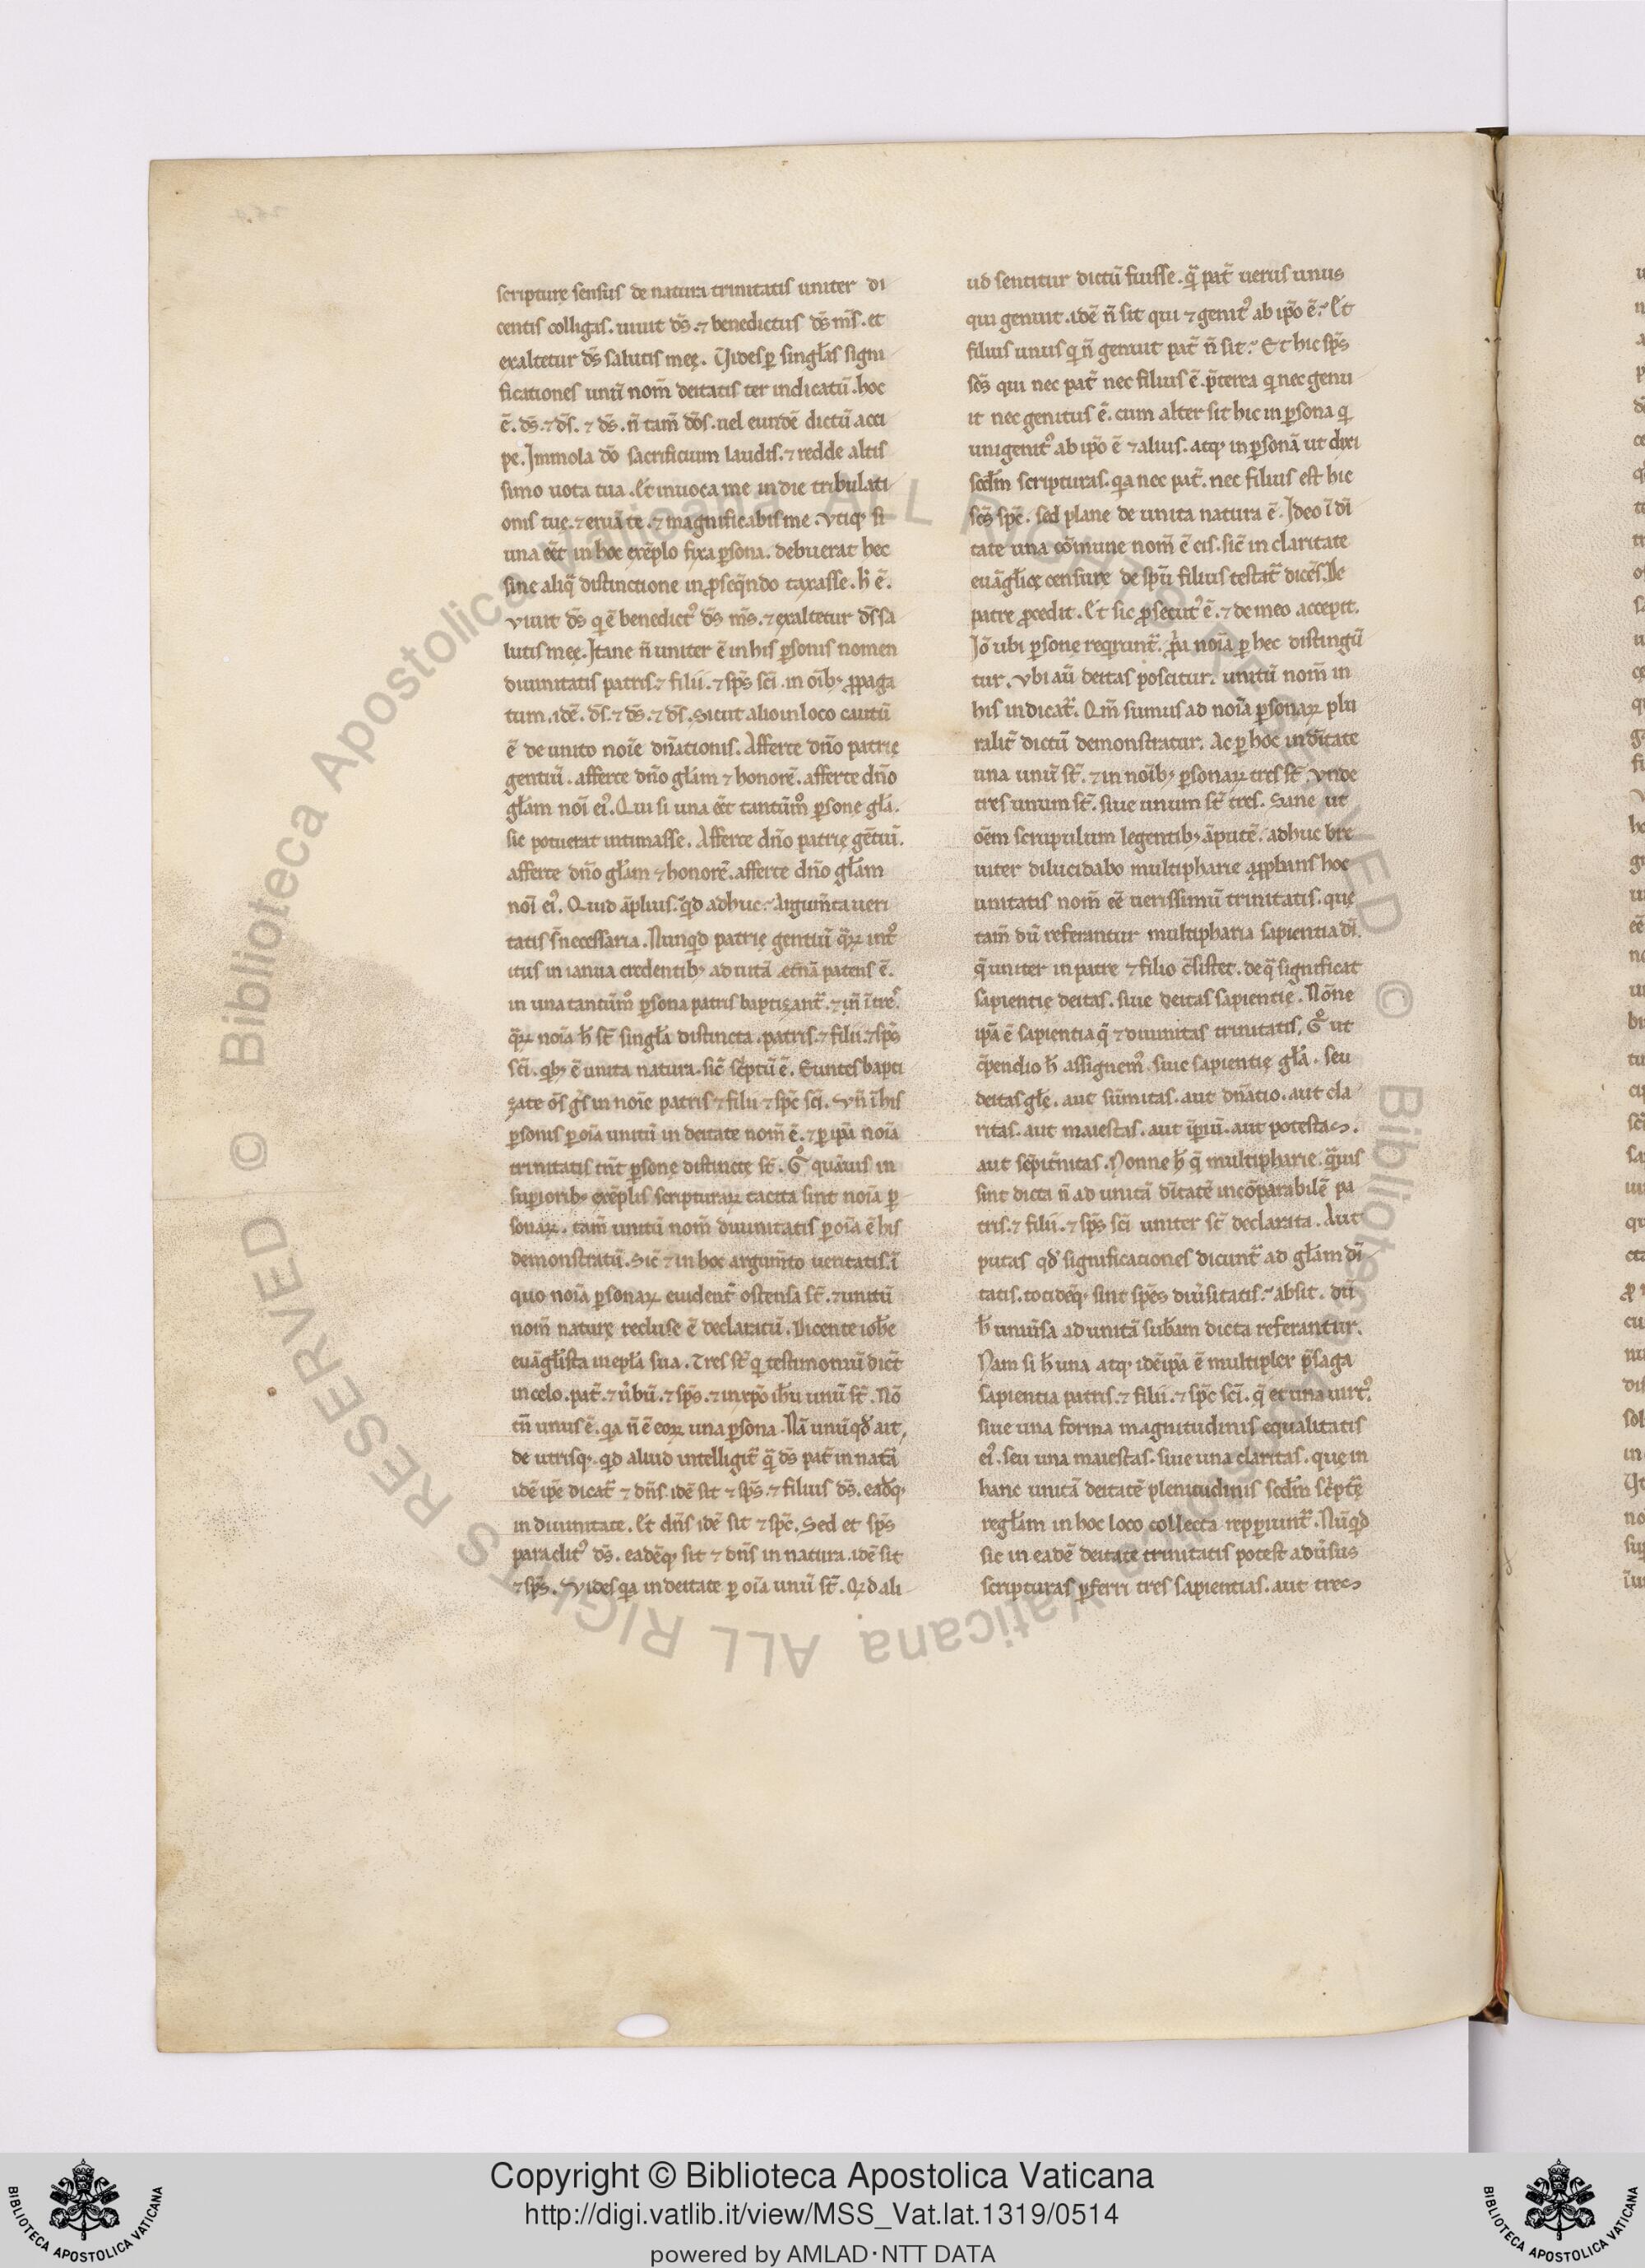 scripturę sensus de natura trinitatis uniter di
centis colligas. uiuit ds̄. ⁊ benedictus ds̄ ms̄. et
exaltetur ds̄ salutis meę. Vides ꝑ singlas signi
ficationes unitū nom̄ deitatis ter indicatū. hoc
ē. ds̄. ⁊ ds̄. ⁊ ds̄. n̄ tam̄ dōs. uel eundē dictū acci
pe. Immola dō sacrificium laudis. ⁊ redde altis
simo uota tua. Et inuoca me in die tribulati
onis tue. ⁊ eruā te. ⁊ magnificabis me. Vtiqꝫ si
una eēt in hoc exēplo fixa ꝑsona. debuerat hec
sine aliq̄ distinctione in ꝓseq̄ndo taxasse. h̄ ē.
viuit ds̄ q̄ ē benedictꝰ ds̄ ms̄. ⁊ exaltetur ds̄ sa
lutis meę. Itane n̄ uniter ē in his ꝑsonis nomen
diuinitatis patris. ⁊ filii. ⁊ sps̄ sc̄i. in oībꝫ ꝓpaga
tum. idē. ds̄. ⁊ ds̄. ⁊ ds̄. Sicut alio in loco cautū
ē de unito noīe dn̄ationis. Afferte dn̄o patrię
gentiū. afferte dn̄o glām ⁊ honorē. afferte dn̄o
glām noī eiꝰ. Qui si una eēt tantūmͦ ꝑsone glā.
sic potuerat intimasse. Afferte dn̄o patrię gētiū.
afferte dn̄o glām ⁊ honorē. afferte dn̄o glām
noī eiꝰ. Quid āplius. qd̄ adhuc. Argum̄ta ueri
tatis s̄t necessaria. Nunqd̄ patrię gentiū q̄ꝝ int̄
itus in ianua credentibꝫ ad uitā et̄nā patens ē.
in una tantūmͦ ꝑsona patris baptizant̄. ⁊ n̄ ī tresͤ.
q̄ꝝ noīa h̄ st̄ singla distincta. patris. ⁊ filii. ⁊ sps̄
sc̄i. qbꝫ ē unita natura. sic̄ sc̄ptū ē. Euntes bapti
zate oēs gs̄ in noīe patris ⁊ filii ⁊ spc̄ sc̄i. Vn̄ ī his
ꝑsonis ꝑ oīa unitū in deitate nom̄ ē. ⁊ ꝑ ipā noīa
trinitatis tn̄t ꝑsonę distinctę st̄. Gͦ quāuis in
suꝑioribꝫ exēplis scripturaꝝ tacita sint noīa ꝑ
sonaꝝ. tam̄ unitū nom̄ diuinitatis ꝑ oīa ē his
demonstratū. Sic̄ ⁊ in hoc argum̄to ueritatis. ī
quo noīa ꝑsonaꝝ euident̄ ostensa st̄. ⁊ unitū
nom̄ naturę recluse ē declaratū. Dicente ioh̄e
euāglista in epla sua. Tres st̄ q̄ testimoniū dic̄t
in celo. pat̄. ⁊ ūbū. ⁊ sps̄. ⁊ in xp̄o ih̄u unū st̄. Nō
tn̄ unus ē. qa n̄ ē eoꝝ una ꝑsona. Nā unū qd̄ ait,
de utrisqꝫ. qd̄ aliud intelligit̄ q̄ ds̄ pat̄ in nat̄a
idē ipē dicat̄ ⁊ dn̄s. idē sit ⁊ sps̄. ⁊ filius ds̄. eadēqꝫ
in diuinitate. Et dn̄s idē sit ⁊ spc̄. Sed et sps̄
paraclitꝰ ds̄. eadēqꝫ sit ⁊ dn̄s in natura. idē sit
⁊ sps̄. Vides qa in deitate ꝑ oīa unū st̄. Qd̄ ali
ud sentitur dictū fuisse. q̄ pat̄ uerus unus
qui genuit. idē n̄ sit qui ⁊ genitꝰ ab ipō ē. Et
filius unus q̄ n̄ genuit pat̄ n̄ sit. Et hic sps̄
sc̄s qui nec pat̄ nec filius ē. p̄terea q̄ nec genu
it nec genitus ē. cum alter sit hic in ꝑsona q̄
unigenitꝰ ab ipō ē ⁊ alius. atqꝫ in ꝑsonā ut dixi
scdm̄ scripturas. qa nec pat̄. nec filius est hic
sc̄s spc̄. sed plane de unita natura ē. Ideo ī di
tate una cōmune nom̄ ē eis. sic̄ in claritate
euāglicę censure de spū filius testat̄ dicēs. De
patre ꝓcedit. Et sic ꝓsecutꝰ ē. ⁊ de meo accepit.
Iō ubi ꝑsone reqrunt̄. p̄a noīa ꝑ hec distingū
tur. Vbi aū deitas poscitur. unitū nom̄ in
his indicat̄. Qm̄ sumus ad noīa ꝑsonaꝝ plu
ralit̄ dictū demonstratur. Ac ꝑ hoc in dītate
una unū st̄. ⁊ in noībꝫ ꝑsonaꝝ tres st̄. Vnde
tres unum st̄. siue unum st̄ tres. Sane ut
oēm scrupulum legentibꝫ āputē. adhuc bre
uiter dilucidabo multipharie ꝓplans hoc
unitatis nom̄ eē uerissimū trinitatis. quę
tam̄ dū referantur multipharia sapientia dī.
q̄ uniter in patre ⁊ filio c̄sistet. de q̄ significat
sapientię deitas. siue deitas sapientię. Nōne
ipā ē sapientia q̄ ⁊ diuinitas trinitatis. Gͦ ut
cp̄endio h̄ assignemꝰ. siue sapientię glā. seu
deitas glę. aut sum̄itas. aut dn̄atio. aut cla
ritas. aut maiestas. aut īꝑiū. aut potestas.
aut sēpit̄nitas. Nonne h̄ q̄ multipharie. q̄uis
sint dicta n̄ ad unitā dītatē incōparabilē pa
tris. ⁊ filii. ⁊ sps̄ sc̄i uniter st̄ declarata. Aut
putas qd̄ significationes dicunt̄ ad glām di
tatis. totidēqꝫ sint spēs diūsitatis. absit. dū
h̄ uniūsa ad unitā subām dicta referantur.
Nam si h̄ una atqꝫ idē ipā ē multipler p̄saga
sapientia patris. ⁊ filii. ⁊ spc̄ sc̄i. q̄ et una uirtꝰ.
siue una forma magnitudinis equalitatis
eiꝰ. seu una maiestas. siue una claritas. que in
hanc unitā deitatē plenitudinis scdm̄ sc̄ptę
reglām in hoc loco collecta repꝑiunt̄. Nūqd̄
sic in eadē deitate trinitatis potest adūsus
scripturas ꝓferri tres sapientias. aut tres
Copyright © Biblioteca Apostolica Vaticana
http://digi.vatlib.it/view/MSS_Vat.lat.1319/0514
powered by AMLAD·NTT DATA
BIBLIOTECA APOSTOLICA VATICANA
BIBLIOTECA APOSTOLICA VATICANA
© Biblioteca Apostolica Vaticana ALL RIGHTS RESERVED © Biblioteca Apostolica Vaticana ALL RIGHTS RESERVED